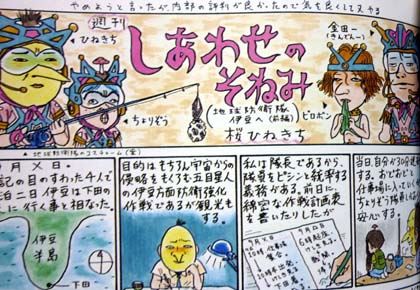 やめようと言ったが内部の評判が良かったので気を良くして又やる
週刊
しあわせの
そねみ
(地球防衛隊
伊豆へ(前編)
桜ひねきち
ひねきち
ちょりぞう
金田一
(きんでんー)
ピロポン
地球防衛隊のコスチューム(案)
月×日。
記の目のすわった4人で
泊二日伊豆は下田の
に行く事と相なった。
伊豆
半島
下田
目的はもちろん宇宙からの
侵略をもくろむ五目星人
の伊豆方面防衛強化
作戦であるが観光も
する。
私は隊長であるから、
隊員をビシッと統率する
義務がある。前日に、
綿密な作戦計画表
を書いたりしたが
当日、自分が30分
する。おどおど
仕事場に入って
ちょりぞう隊員
安心する。